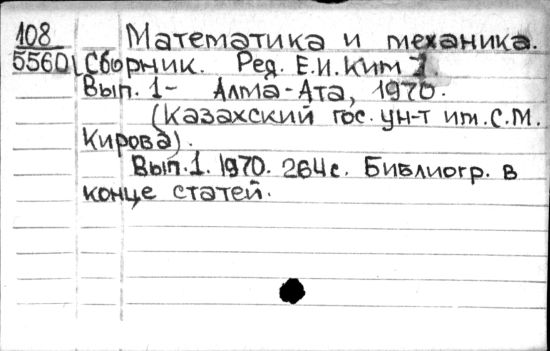 108 Математика и механика.
5560 Сборник. Ред. Е.И. Ким
Вып. 1- Алма-Ата, 1970.
(Казахский гос. ун-т им. С.М.
Кирова).
Вып. 1. 1970. 264 с. Библиогр. в
конце статей.